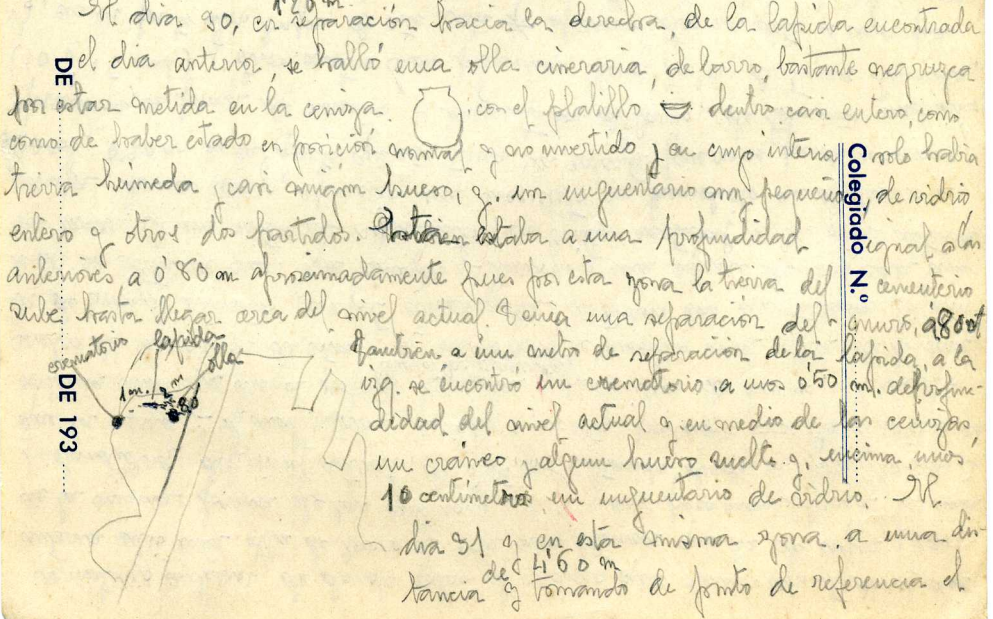 1'20 m.
El dia 30, en separación hacia la derecha, de la lapida encontrada
el dia anterior, se halló una olla cineraria, de barro, bastante negruzca
por estar metida en la ceniza. con el platillo dentro casi entero, como
como de haber estado en posición normal y no invertido y en cuyo interior solo habia
tierra húmeda, casi ningún hueso, y un unguentario muy pequeño, de vidrio
entero y otros dos partidos. estaba a una profundidad igual a las
anteriores, a 0'80 m aproximadamente pues por esta zona la tierra del cementerio
sube hasta llegar cerca del nivel actual. Tenia una separación del muro,
También a un metro de separación de la lapida, a la
izq. se encontró un crematorio, a unos 0'50 m. de profun-
didad del nivel actual y en medio de las cenizas
un cráneo y algun hueso suelto y, encima, unos
10 centimetros un unguentario de vidrio. El
dia 31 y en esta misma zona, a una dis-
de 4'60 m
tancia y tomando de punto de referencia el
crematorio
lapida
olla
1 m.
80
DE
DE 193
Colegiado N.º